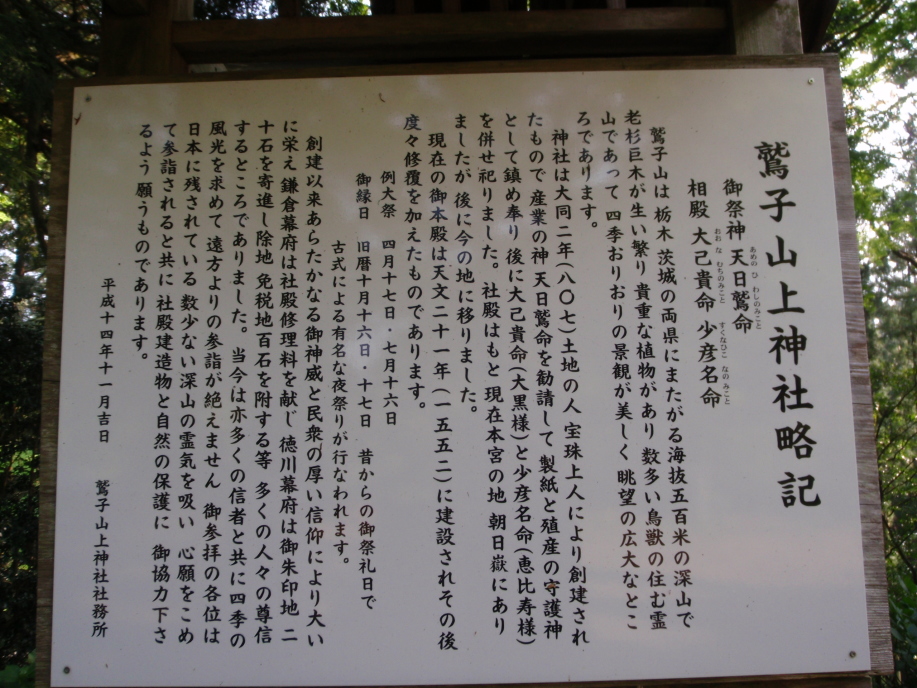 鷲子山上神社略記
御祭神 天日鷲命
あめの ひ わしのみこと
相殿 大己貴命 少彦名命
おお な むちのみこと すくなひこ なの みこと
鷲子山は 栃木 茨城の両県にまたがる海抜五百米の深山で
老杉巨木が生い繁り貴重な植物があり 数多い鳥獣の住む霊
山であって 四季おりおりの景観が美しく 眺望の広大なとこ
ろであります。
神社は大同二年(八〇七)土地の人 宝珠上人により創建され
たもので産業の神天日鷲命を勧請して 製紙と殖産の守護神
として鎮め奉り 後に大己貴命(大黒様)と少彦名命(恵比寿様)
を併せ祀りました。社殿はもと 現在本宮の地 朝日嶽にあり
ましたが 後に今の地に移りました。
現在の御本殿は天文二十一年(一五五二)に建設されその後
度々修覆を加えたものであります。
例大祭 四月十七日・七月十六日
御縁日 旧暦十月十六日・十七日 昔からの御祭礼日で
古式による有名な夜祭りが行なわれます。
創建以来あらたかなる御神威と民衆の厚い信仰により大い
に栄え鎌倉幕府は社殿修理料を献じ 徳川幕府は御朱印地 二
十石を寄進し除地 免税地百石を附する等 多くの人々の尊信
するところでありました。当今は亦多くの信者と共に四季の
風光を求めて 遠方よりの参詣が絶えません 御参拝の各位は
日本に残されている 数少ない深山の霊気を吸い 心願をこめ
て参詣されると共に 社殿建造物と自然の保護に 御協力下さ
るよう願うものであります。
平成十四年十一月吉日 鷲子山上神社社務所